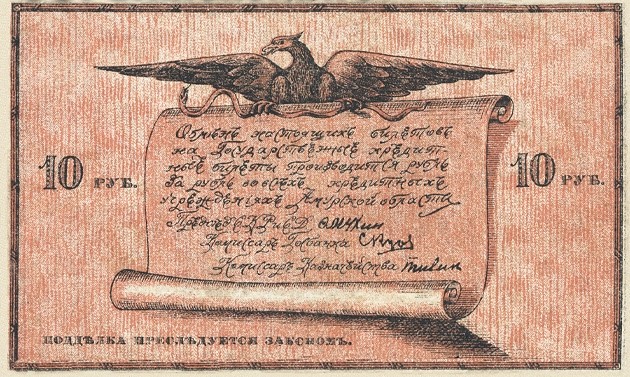 Обмѣнъ настоящихъ билетовъ
на Государственные кредит-
ные билеты производится рубль
за рубль во всѣхъ кредитныхъ
учрежденіяхъ Амурской области
10 РУБ.
10 РУБ.
Мухин
Комиссаръ Госбанка
Комиссаръ Казначейства
ПОДДѢЛКА ПРЕСЛѢДУЕТСЯ ЗАКОНОМЪ.